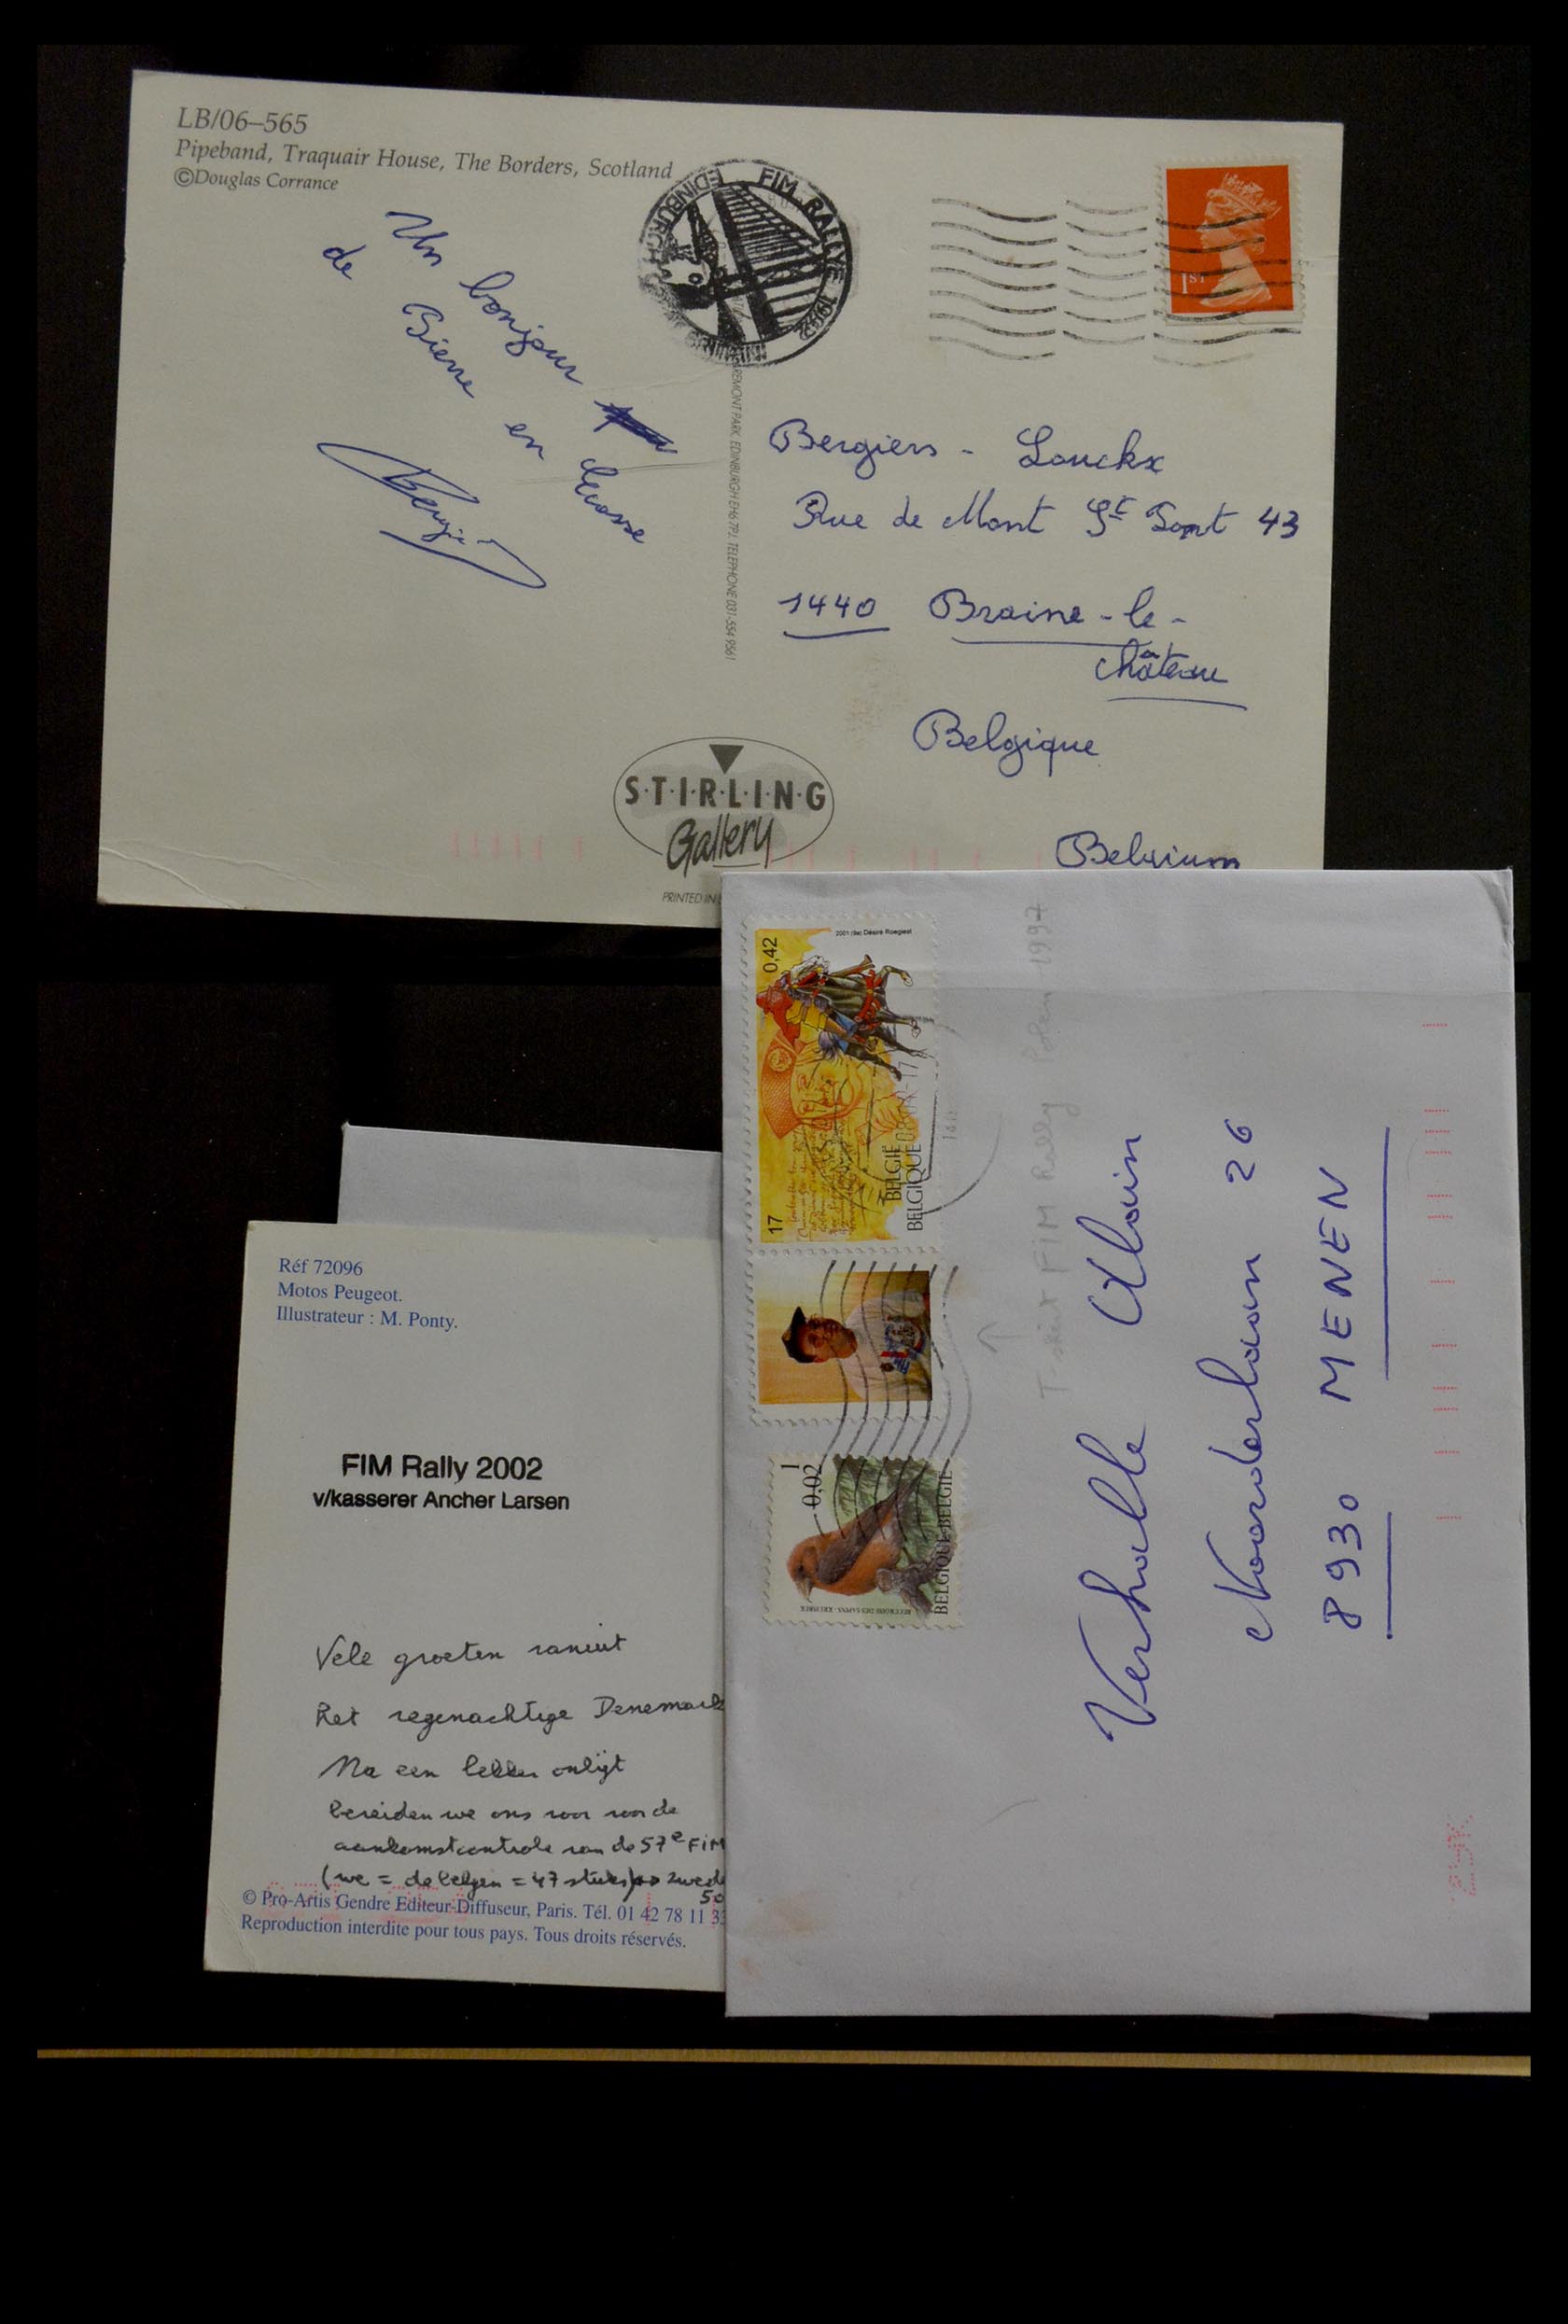 LB/06–565
Pipeband, Traquair House, The Borders, Scotland
©Douglas Corrance
EDINBURGH FIM RALLYE 1992
1ST
Un bonjour
de Pierre en Ecosse
REMONT PARK, EDINBURGH EH6 7PJ. TELEPHONE 031-554 9561
Bergiers - Louckx
Rue de Mont St Pont 43
1440 Braine-le-
château
Belgique
Belgium
S·T·I·R·L·I·N·G
Gallery
PRINTED IN
Réf 72096
Motos Peugeot.
Illustrateur : M. Ponty.
FIM Rally 2002
v/kasserer Ancher Larsen
Vele groeten vanuit
het regenachtige Denemark
Na een lekker ontbijt
bereiden we ons voor voor de
aankomstcontrole van de 57e FIM
(we = de Belgen = 47 stuks) zwed
50
© Pro-Artis Gendre Editeur-Diffuseur, Paris. Tél. 01 42 78 11 33
Reproduction interdite pour tous pays. Tous droits réservés.
0,42
2001 (9a) Désiré Roegiest
17
BELGIË
BELGIQUE
1
0,02
BELGIQUE-BELGIË
T-shirt FIM Rally Polen 1997
Verhalle Alain
Noorderlaan 26
8930 MENEN